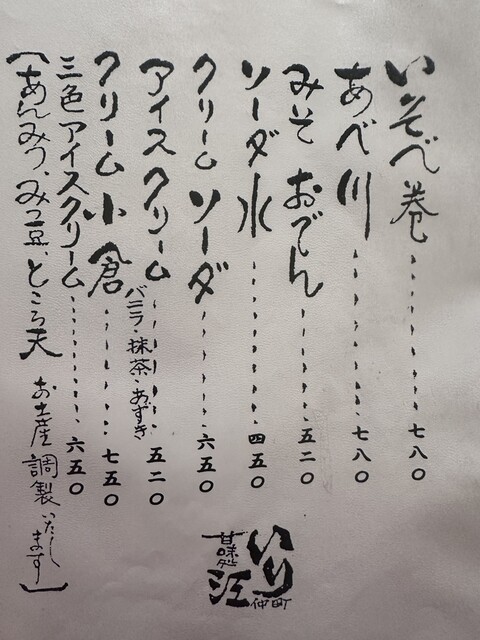 いそべ巻 七八〇
あべ川 七八〇
みそおでん 五二〇
ソーダ水 四五〇
クリームソーダ 六五〇
アイスクリーム バニラ・抹茶・あずき 五二〇
クリーム小倉 七五〇
三色アイスクリーム 六五〇
〔あんみつ、みつ豆、ところ天 お土産調製いたします〕
甘味処
いり江
仲町